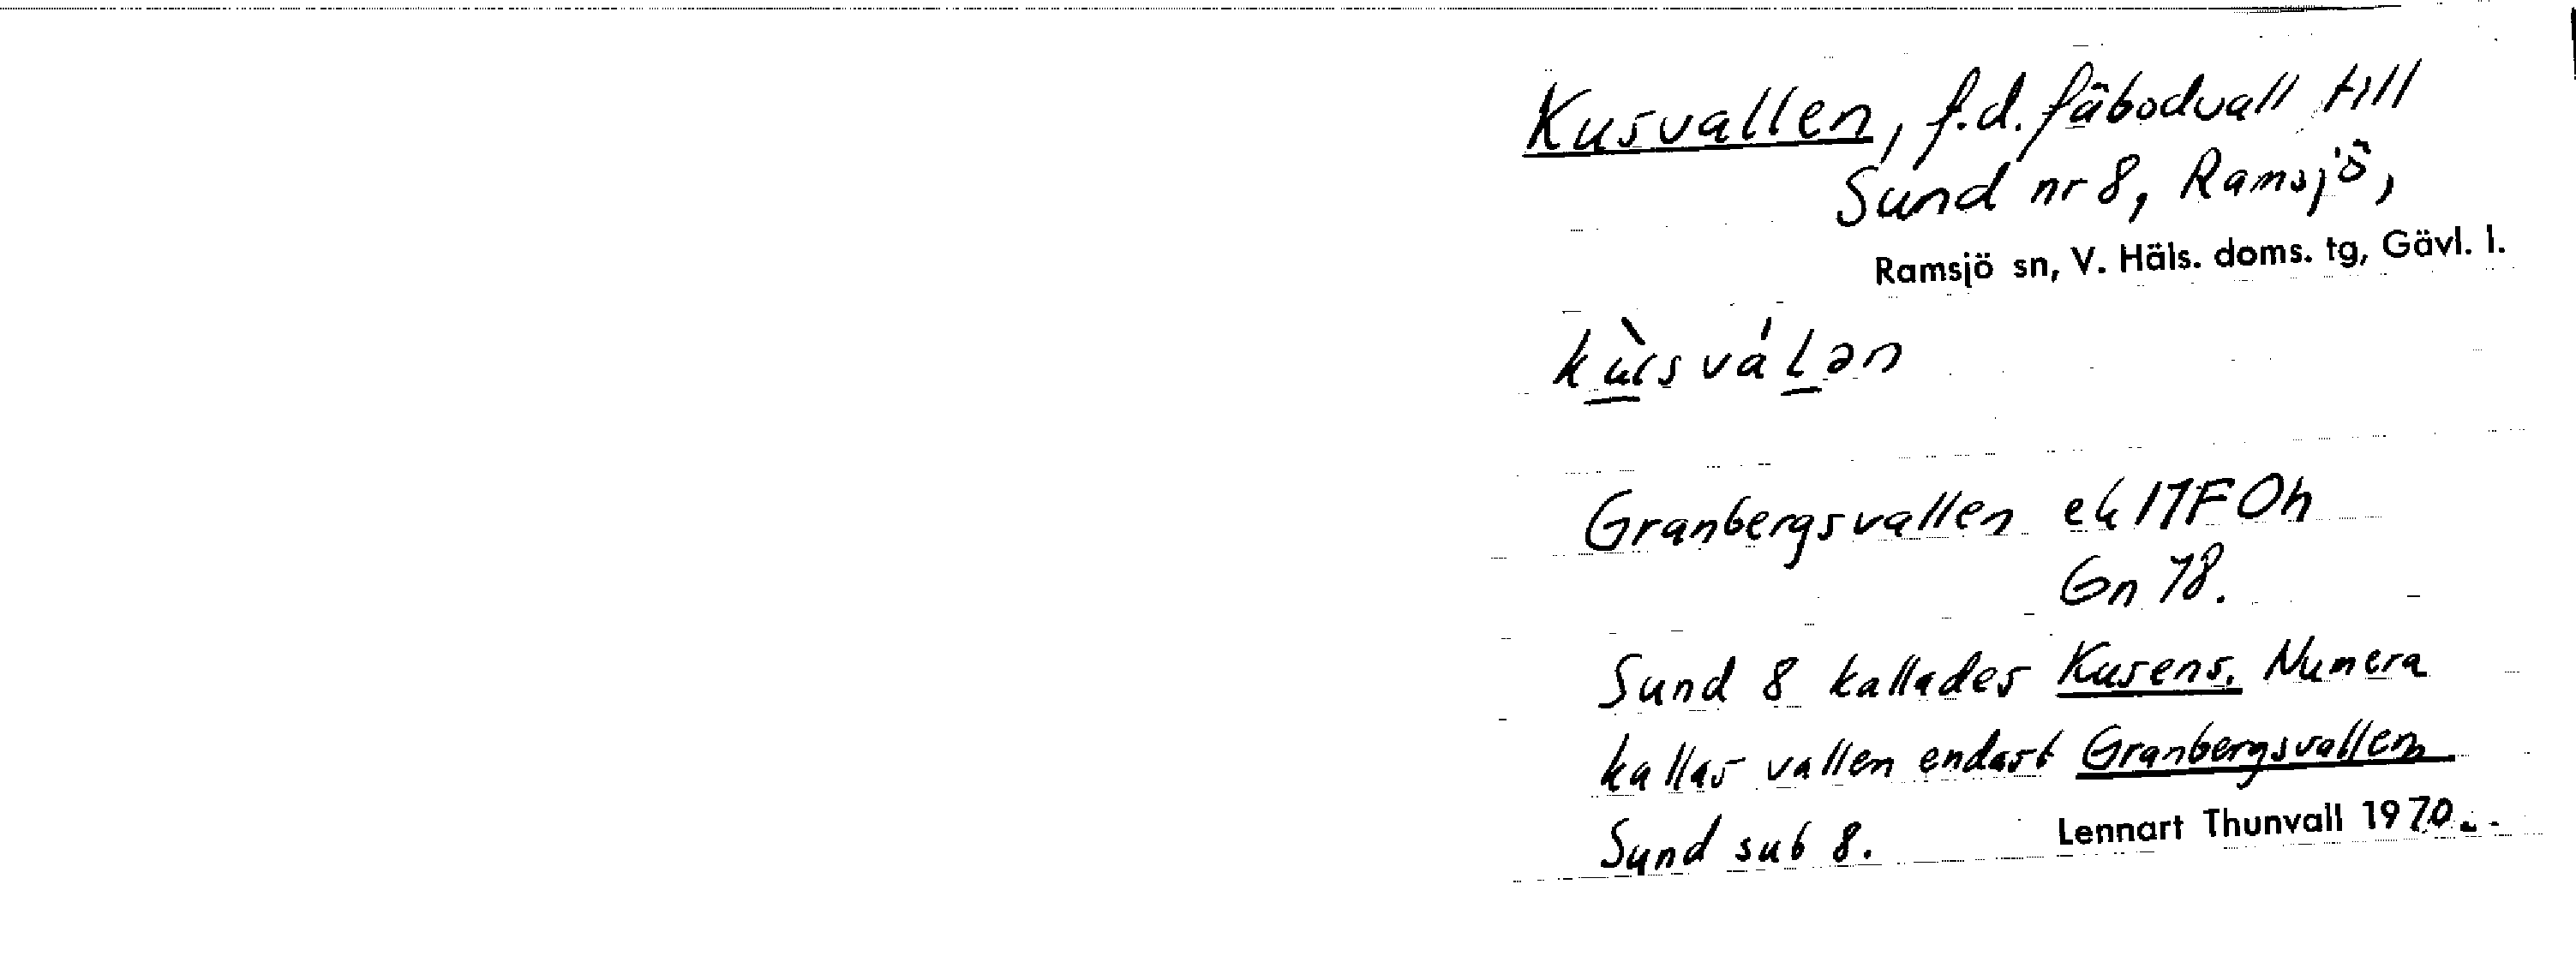 Kusvallen, f.d. fäbodvall till
Sund nr 8, Ramsjö,
Ramsjö sn, V. Häls. doms. tg, Gävl. l.
kùsváLən
Granbergsvallen ek 17F0h
Gn 78.
Sund 8 kallades Kusens. Numera
kallas vallen endast Granbergsvallen
Sund sub 8. Lennart Thunvall 1970.